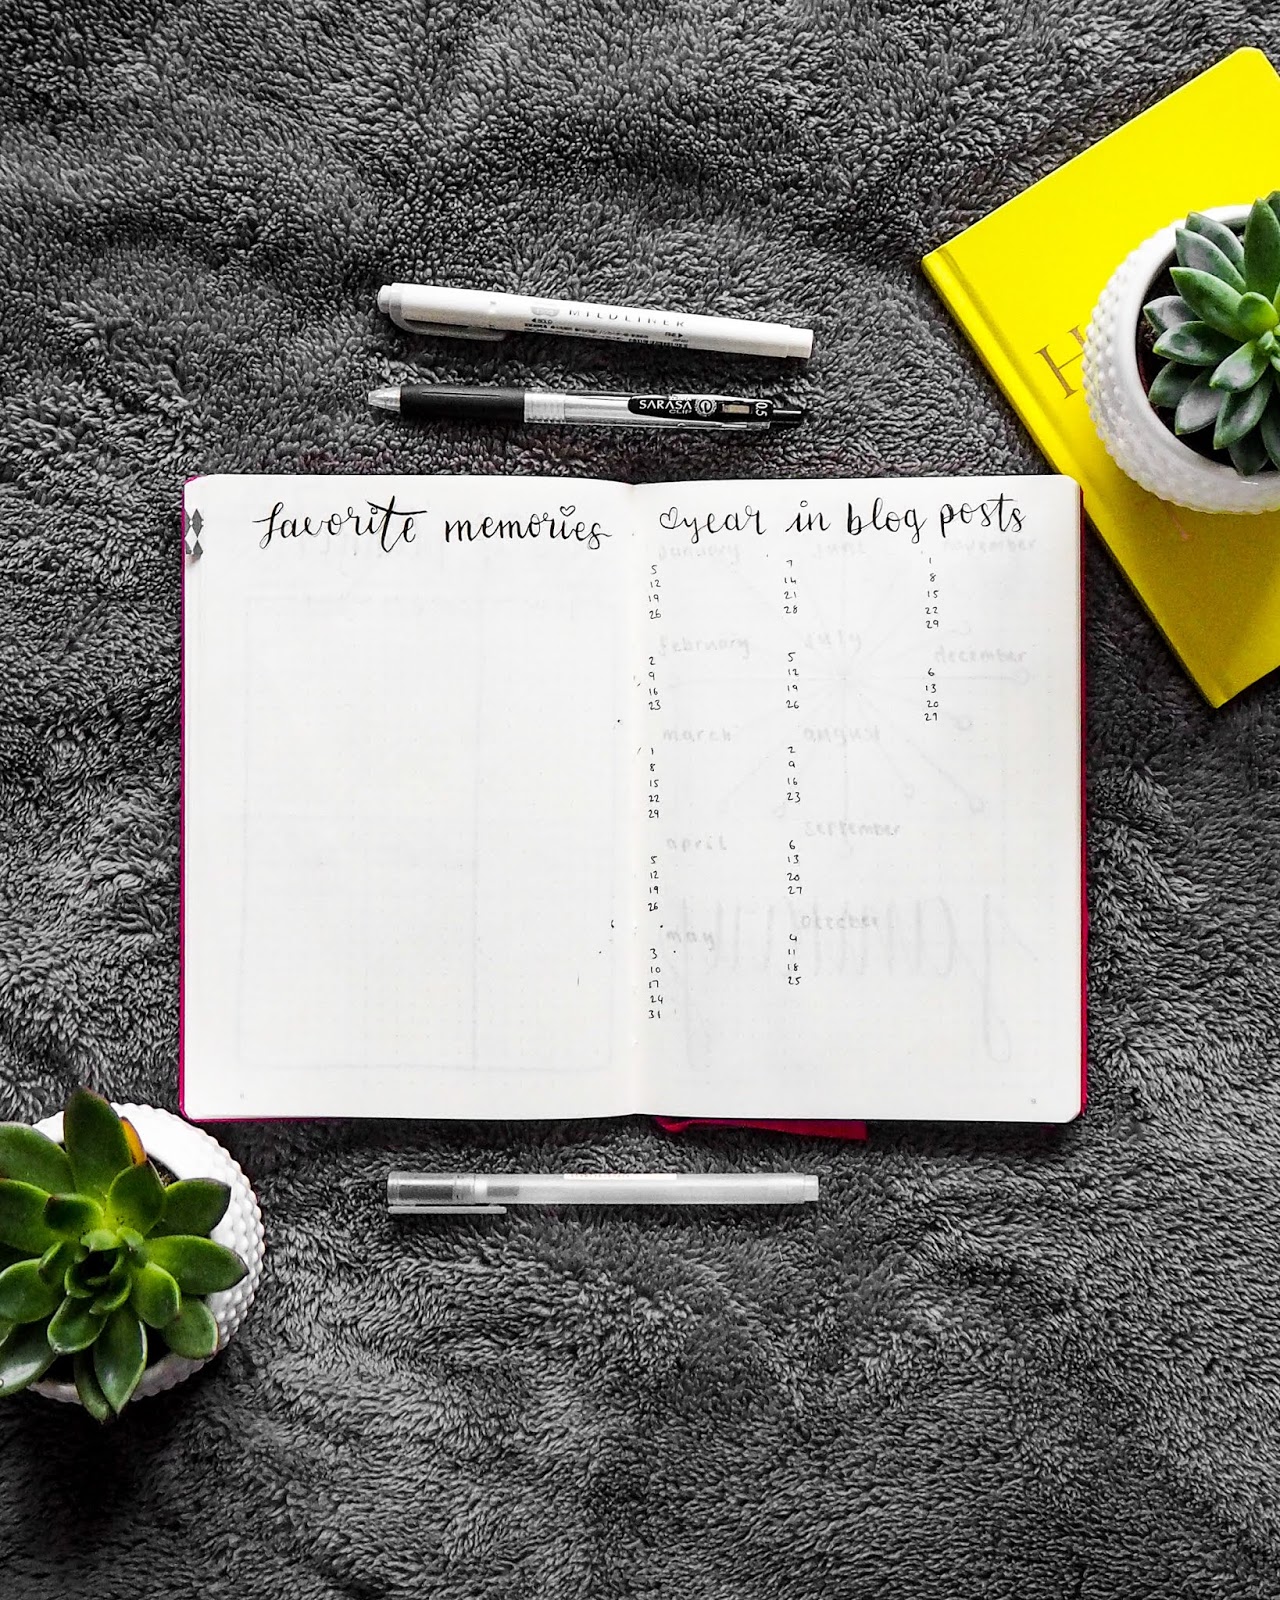 MILDLINER
SARASA
CLIP
0.5
H
favorite memories
year in blog posts
january
5
12
19
26
february
2
9
16
23
march
1
8
15
22
29
april
5
12
19
26
may
3
10
17
24
31
june
7
14
21
28
july
5
12
19
26
august
2
9
16
23
september
6
13
20
27
october
4
11
18
25
november
1
8
15
22
29
december
6
13
20
27